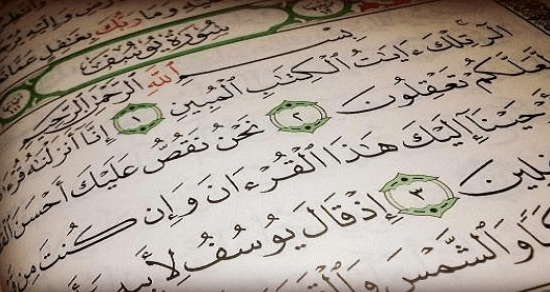 وَمَا رَبُّكَ بِغَٰفِلٍ عَمَّا
سُورَةُ يُوسُفَ
بِسْمِ ٱللَّهِ ٱلرَّحْمَٰنِ ٱلرَّحِيمِ
الٓر تِلْكَ ءَايَٰتُ ٱلْكِتَٰبِ ٱلْمُبِينِ ١ إِنَّآ أَنزَلْنَٰهُ قُرْءَٰ
لَّعَلَّكُمْ تَعْقِلُونَ ٢ نَحْنُ نَقُصُّ عَلَيْكَ أَحْسَنَ
حَيْنَآ إِلَيْكَ هَٰذَا ٱلْقُرْءَانَ وَإِن كُنتَ مِن
فِلِينَ ٣ إِذْ قَالَ يُوسُفُ لِأَبِيهِ
وَٱلشَّمْسَ وَٱلْقَمَ